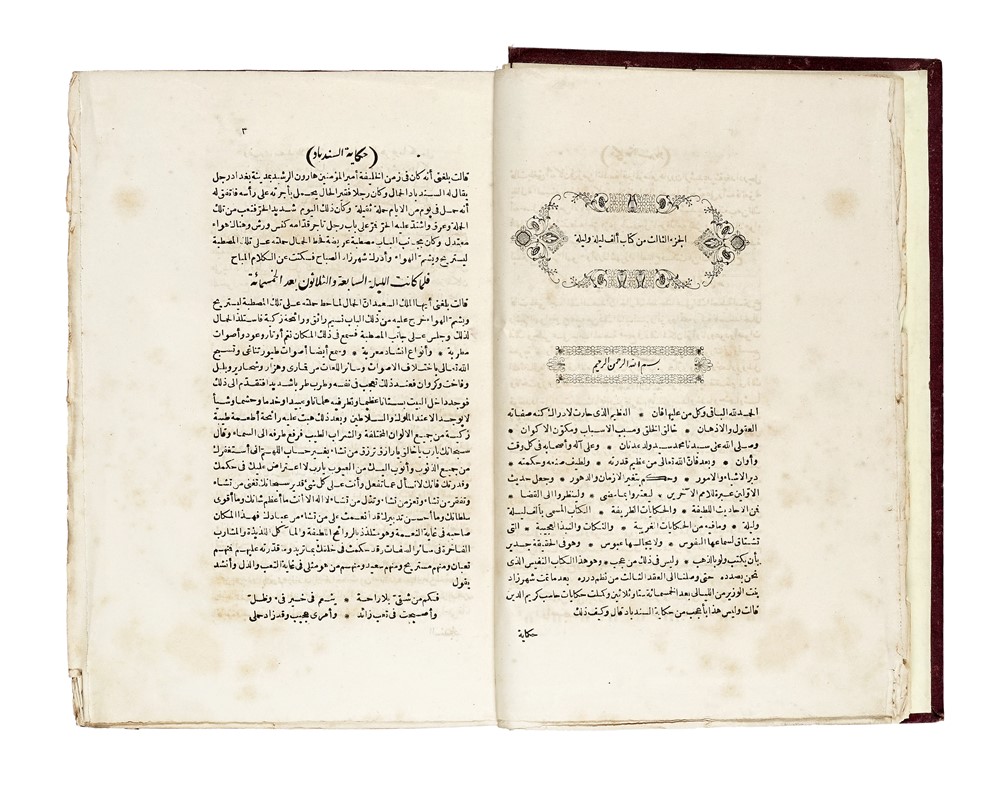 الجزء الثالث من كتاب ألف ليلة وليلة
بسم الله الرحمن الرحيم
الحمد لله الباقى وكل من عليها فان * العظيم الذى حارت لادراك كنه صفاته
العقول والاذهان * خالق الخلق ومسبب الاسباب ومكوّن الاكوان *
وصلى الله على سيدنا محمد سيد ولد عدنان * وعلى آله وأصحابه فى كل وقت
وأوان * وبعد فانّ الله تعالى من عظيم قدرته * ولطيف صنعه وحكمته *
دبر الاشياء والامور * وحكم بتغير الازمان والدهور * وجعل حديث
الاوّلين عبرة للامم الآخرين * ليعتبروا بما مضى * ولينظروا الى القضا *
فمن الاحاديث اللطيفة * والحكايات الظريفة * الكتاب المسمى بألف ليلة
وليلة * وما فيه من الحكايات الغريبة * والنكات والنبذ العجيبة * التى
تشتاق لسماعها النفوس * ولا يجالسها عبوس * وهو فى الحقيقة جدير
بأن يكتب ولو بالذهب * وليس فى ذلك من عجب * وهو هذا الكتاب النفيس الذى
نحن بصدده * حتى وصلنا الى العقد الثالث من نظم درره * بعد ما تمت شهرزاد
بنت الوزير من الليالى بعد الخمسمائة ستا وثلاثين وكملت حكايات حاسب كريم الدين
قالت وليس هذا بأعجب من حكاية السندباد قال وكيف ذلك
حكاية
٣
(حكاية السندباد)
قالت بلغنى أنه كان فى زمن الخليفة أمير المؤمنين هارون الرشيد بمدينة بغداد رجل
يقال له السندباد الحمال وكان رجلا فقير الحال يحمل بأجرته على رأسه فاتفق له
أنه حمل فى يوم من الايام حملة ثقيلة * وكان ذلك اليوم شديد الحرّ فتعب من تلك
الحملة وعرق واشتدّ عليه الحرّ فمرّ على باب رجل تاجر قدّامه كنس ورش وهناك هواء
معتدل وكان بجانب الباب مصطبة عريضة فحط الحمال حملته على تلك المصطبة
ليستريح ويشم الهواء وأدرك شهرزاد الصباح فسكتت عن الكلام المباح
فلما كانت الليلة السابعة والثلاثون بعد الخمسمائة
قالت بلغنى أيها الملك السعيد ان الحمال لما حط حملته على تلك المصطبة ليستريح
ويشم الهواء خرج عليه من ذلك الباب نسيم رائق ورائحة زكية فاستلذ الحمال
لذلك وجلس على جانب المصطبة فسمع فى ذلك المكان نغم أوتار وعود وأصوات
مطربة * وأنواع انشاد معربة * وسمع أيضا أصوات طيور تناغى وتسبح
الله تعالى باختلاف الاصوات وسائر اللغات من قمارى وهزار وشحارير وبلبل
وفاخت وكروان فعند ذلك تعجب فى نفسه وطرب طربا شديدا فتقدّم الى ذلك
فوجد داخل البيت بستانا عظيما ونظر فيه غلمانا وعبيدا وخدما وحشما وشيأ
لا يوجد الا عند الملوك والسلاطين وبعد ذلك هبت عليه رائحة أطعمة طيبة
زكية من جميع الالوان المختلفة والشراب الطيب فرفع طرفه الى السماء وقال
سبحانك يارب يا خالق يا رازق ترزق من تشاء بغير حساب اللهمّ انى أستغفرك
من جميع الذنوب وأتوب اليك من العيوب يارب لا اعتراض عليك فى حكمك
وقدرتك فانك لا تسأل عما تفعل وأنت على كل شئ قدير سبحانك تغنى من تشاء
وتفقر من تشاء وتعز من تشاء وتذل من تشاء لا اله الا أنت ما أعظم شانك وما أقوى
سلطانك وما أحسن تدبيرك قد أنعمت على من تشاء من عبادك فهذا المكان
صاحبه فى غاية النعمة وهو متلذذ بالروائح اللطيفة والمآكل اللذيذة والمشارب
الفاخرة فى سائر الصفات وقد حكمت فى خلقك بما تريد وما قدرته عليهم فمنهم
تعبان ومنهم مستريح ومنهم سعيد ومنهم من هو مثلى فى غاية التعب والذل وأنشد
يقول
فكم من شقىّ بلا راحة * ينعم فى خير فىء وظلّ
وأصبحت فى تعب زائد * وأمرى عجيب وقد زاد حملى